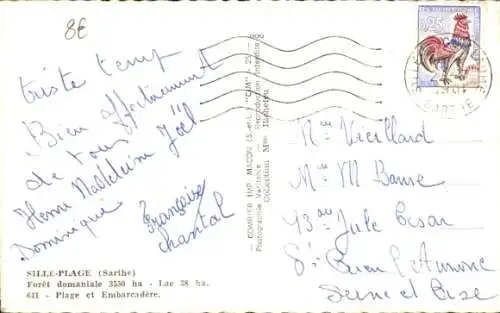 8€
triste temps
Bien affectueusement
de tous
Henri Madeleine Joël
Dominique Françoise
Chantal
SILLÉ-PLAGE (Sarthe)
Forêt domaniale 3550 ha - Lac 38 ha.
611 - Plage et Embarcadère.
COMBIER IMP. MACON (S.-et-L.) "CIM"
Photographie Véritable - Reproduction interdite
Collection Mme
0,25
SARTHE
Mme Vieillard
Me M Barre
43 av Jule César
St Brieu l'Aumone
Seine et Oise